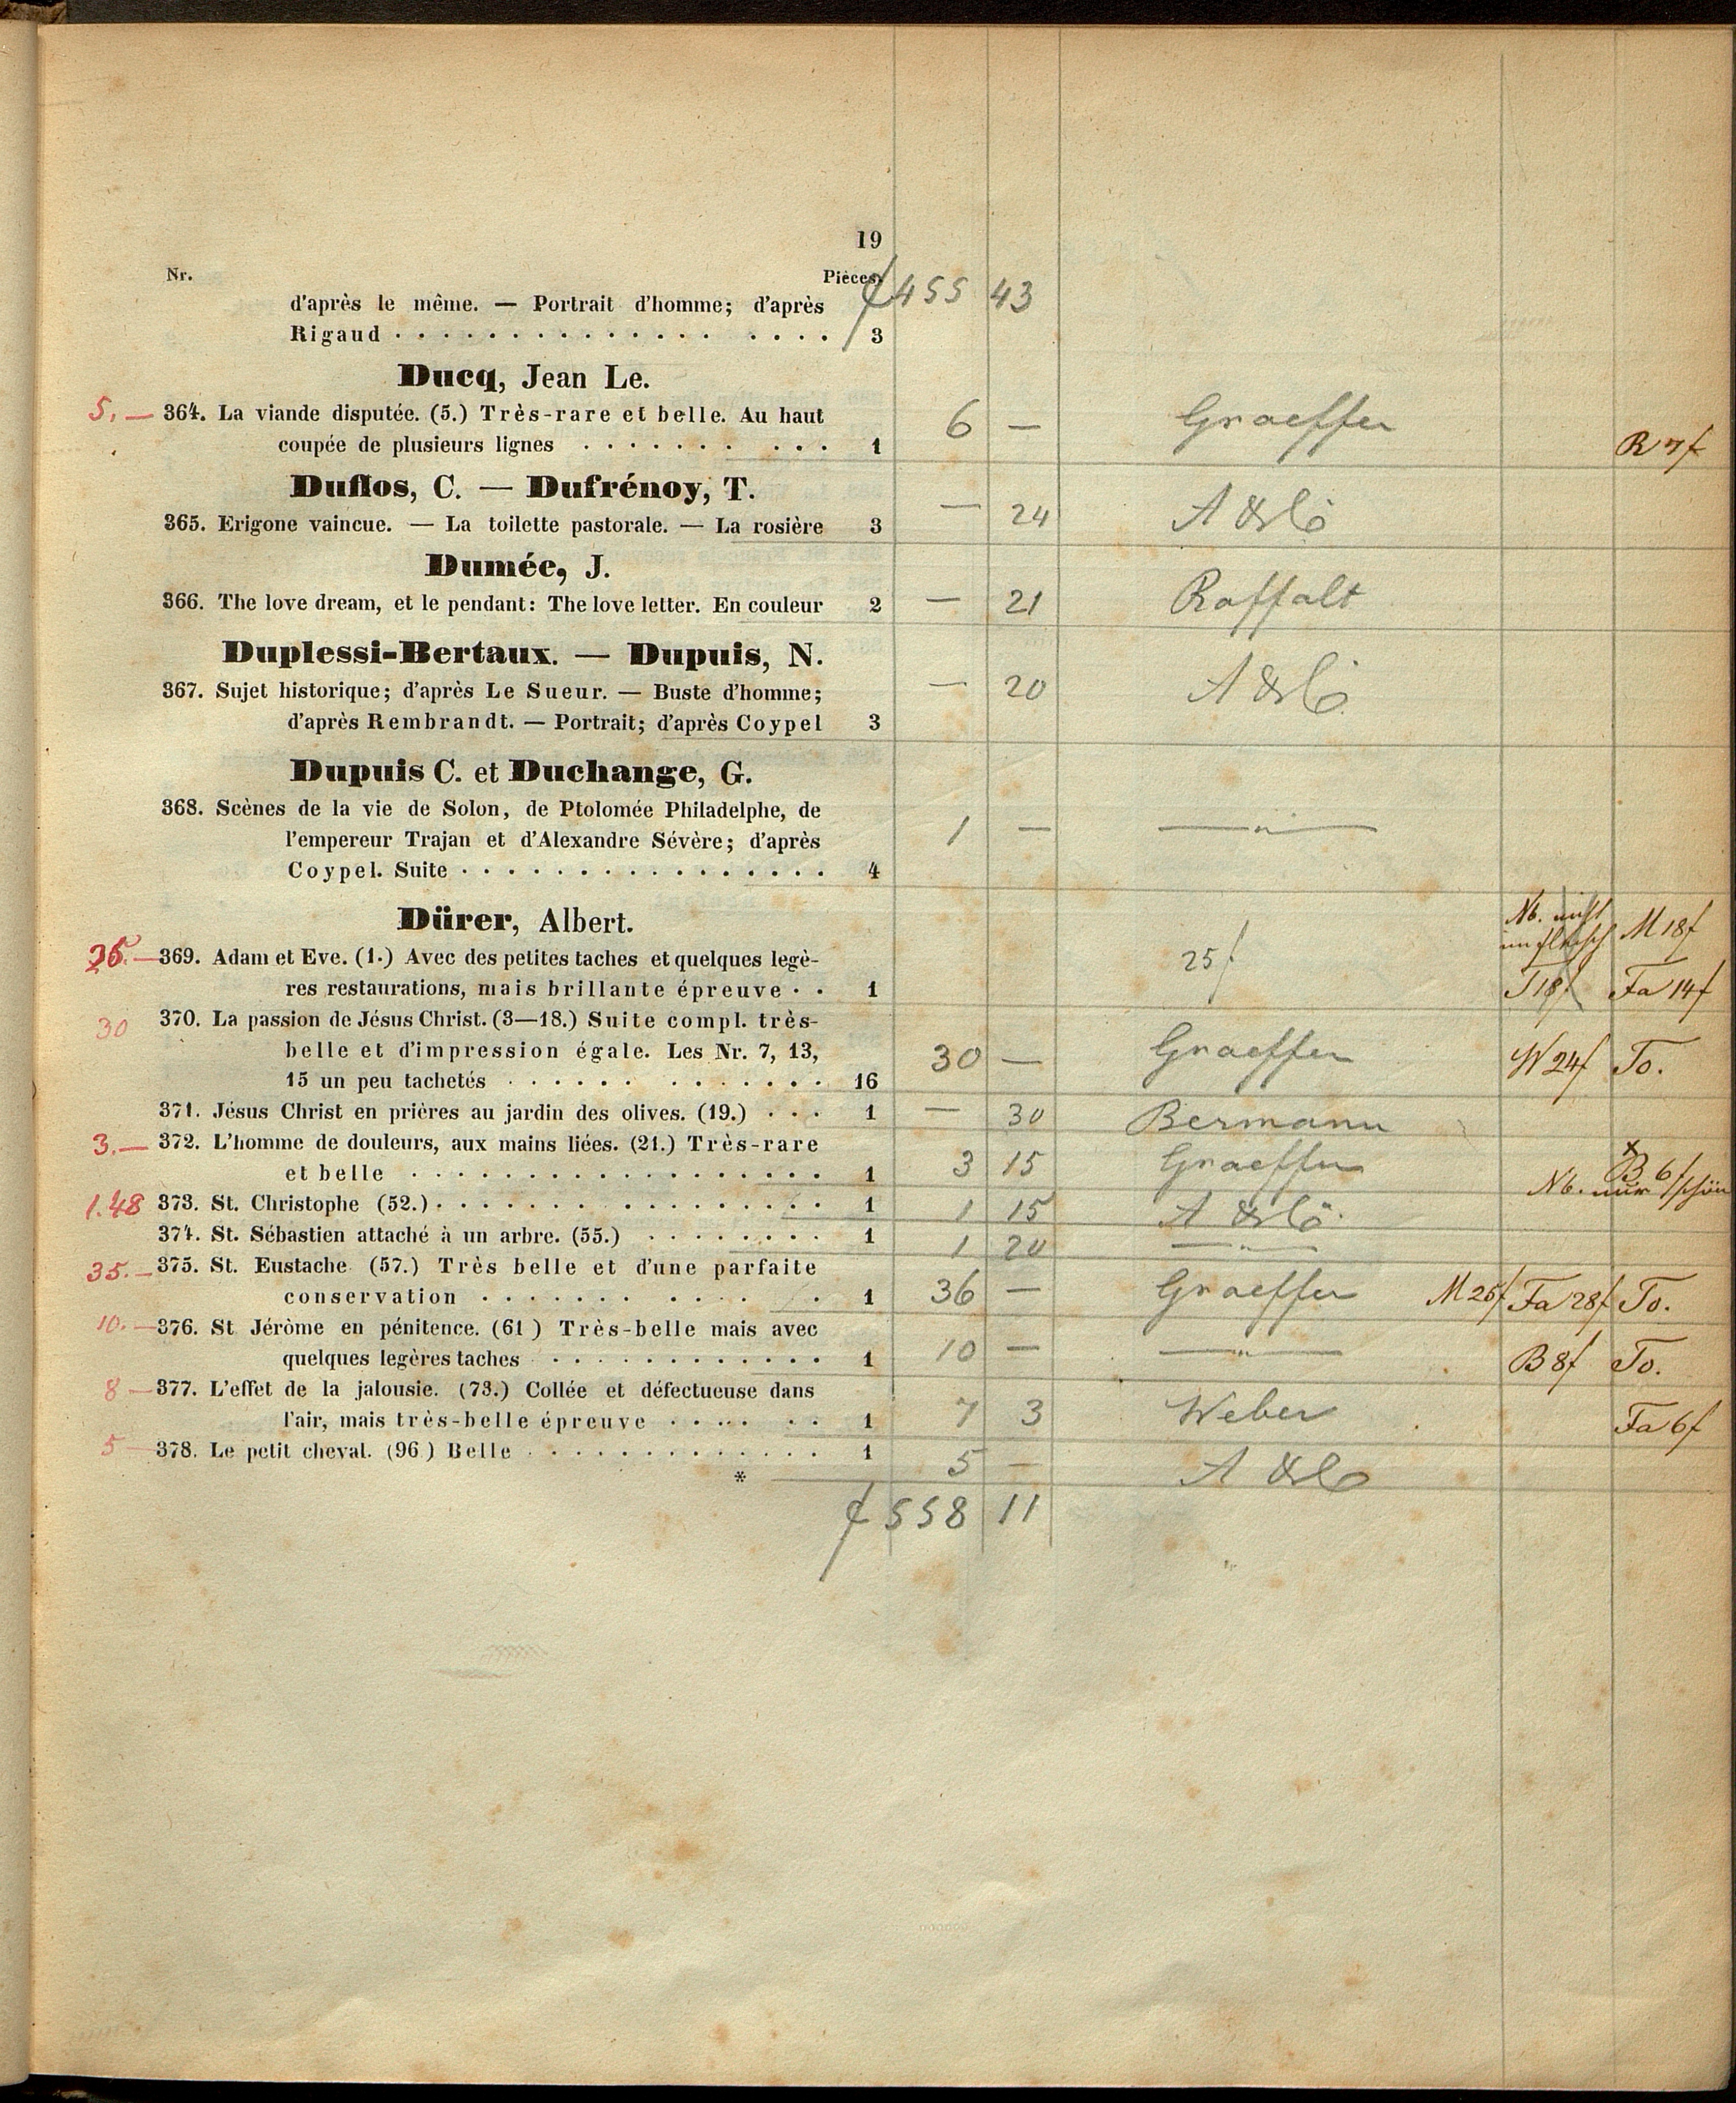 19
Nr. Pièces.
d'après le même. — Portrait d'homme; d'après f 455 43
Rigaud . . . . . . . . . . . . . . . . . . 3
Ducq, Jean Le.
5. — 364. La viande disputée. (5.) Très-rare et belle. Au haut 6 — Graeffer
coupée de plusieurs lignes . . . . . . . . . . 1 R 7f
Duflos, C. — Dufrénoy, T.
365. Erigone vaincue. — La toilette pastorale. — La rosière 3 — 24 A & Co
Dumée, J.
366. The love dream, et le pendant: The love letter. En couleur 2 — 21 Raffalt
Duplessi-Bertaux. — Dupuis, N.
367. Sujet historique; d'après Le Sueur. — Buste d'homme; — 20 A & Co.
d'après Rembrandt. — Portrait; d'après Coypel 3
Dupuis C. et Duchange, G.
368. Scènes de la vie de Solon, de Ptolomée Philadelphe, de
l'empereur Trajan et d'Alexandre Sévère; d'après 1 — — " —
Coypel. Suite . . . . . . . . . . . . . . . . 4
Dürer, Albert. Nb. M 18f
369. Adam et Eve. (1.) Avec des petites taches et quelques legè- 25f
res restaurations, mais brillante épreuve . . 1 T 18f Fa 14f
30 370. La passion de Jésus Christ. (3—18.) Suite compl. très-
belle et d'impression égale. Les Nr. 7, 13, 30 — Graeffer W 24f To.
15 un peu tachetés . . . . . . . . . . . . . 16
371. Jésus Christ en prières au jardin des olives. (19.) . . . 1 — 30 Bermann
3. — 372. L'homme de douleurs, aux mains liées. (21.) Très-rare
et belle . . . . . . . . . . . . . . . . . . 1 3 15 Graeffer B 6f
Nb. nur schön
1.48 373. St. Christophe (52.) . . . . . . . . . . . . . . . . 1 1 15 A & Co.
374. St. Sébastien attaché à un arbre. (55.) . . . . . . . . 1 1 20 — " —
35. — 375. St. Eustache (57.) Très belle et d'une parfaite
conservation . . . . . . . . . . . . 1 36 — Graeffer M 25f Fa 28f To.
10. — 376. St Jérôme en pénitence. (61 ) Très-belle mais avec
quelques legères taches . . . . . . . . . . . . 1 10 — — " — B 8f To.
8 — 377. L'effet de la jalousie. (73.) Collée et défectueuse dans
l'air, mais très-belle épreuve . . . . . . . 1 7 3 Weber Fa 6f
5 — 378. Le petit cheval. (96 ) Belle . . . . . . . . . . . . . 1 5 — A & Co
*
f 558 11